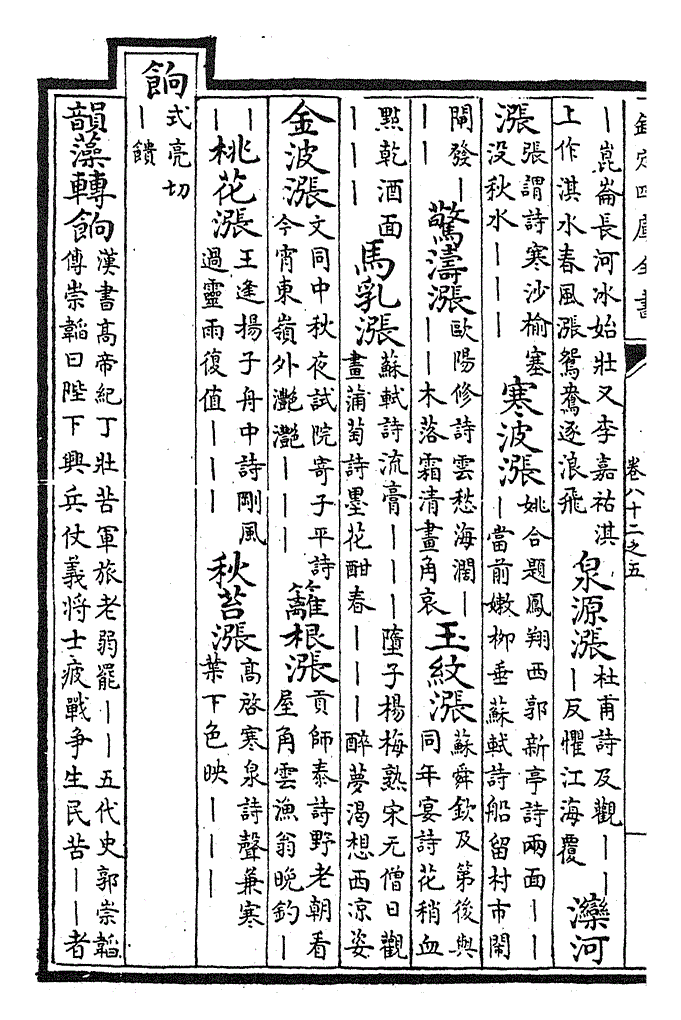 欽定四庫全書
卷八十二之五
｜崑崙長河冰始壯又李嘉祐淇
上作淇水春風漲鴛鴦逐浪飛
泉源漲
杜甫詩及觀｜｜
｜反懼江海覆
灤河
漲
張謂詩寒沙榆塞
没秋水｜｜｜
寒波漲
姚合題鳳翔西郭新亭詩兩面｜｜
｜當前嫩栁垂蘇軾詩船留村市鬧
閘發｜
｜｜
驚濤漲
歐陽修詩雲愁海濶｜
｜｜木落霜清畫角哀
玉紋漲
蘇舜欽及第後與
同年宴詩花稍血
㸃乾酒面
｜｜｜
馬乳漲
蘇軾詩流膏｜｜｜墮子楊梅熟宋无僧日觀
畫蒲萄詩墨花酣春｜｜｜醉夢渴想西凉姿
金波漲
文同中秋夜試院寄子平詩
今宵東嶺外灔灔｜｜｜
籬根漲
貢師泰詩野老朝看
屋角雲漁翁晩釣｜
｜｜
桃花漲
王逢揚子舟中詩剛風
過靈雨復值｜｜｜
秋苔漲
高啓寒泉詩聲兼寒
葉下色映｜｜｜
餉
式亮切
｜饋
韻藻轉餉
漢書高帝紀丁壯苦軍旅老弱罷｜｜五代史郭崇韜
傳崇韜曰陛下興兵仗義將士疲戰爭生民苦｜｜者